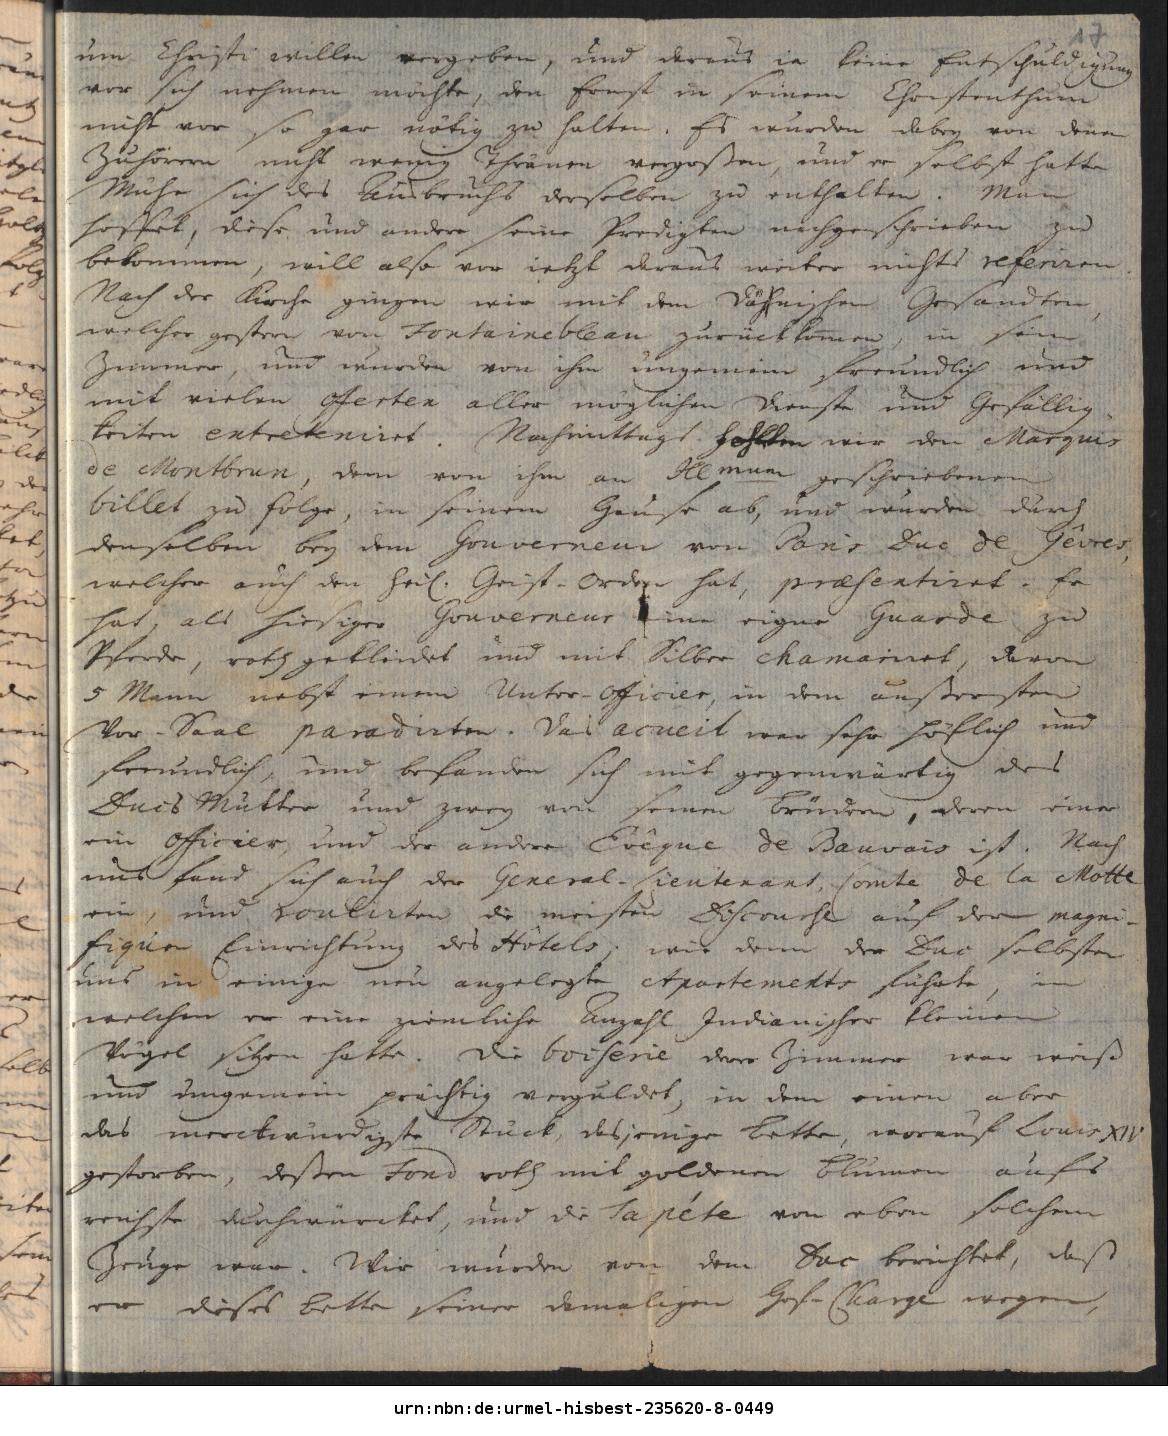 17
um Christi willen vergeben, und daraus ja keine Entschuldigung
vor sich nehmen mochte, den Ernst in seinem Christenthum
nicht vor so gar nötig zu halten. Es wurden dabey von denen
Zuhörern nicht wenig Thränen vergoßen, und er selbst hatte
Mühe sich des Ausbruchs derselben zu enthalten. Man
hoffet, diese und andere seine Predigten nachgeschrieben zu
bekommen, will also vor jetzt daraus weiter nichts referiren.
Nach der Kirche gingen wir mit dem Dähnischen Gesandten,
welcher gestern von Fontainebleau zurückkomen, in sein
Zimmer, und wurden von ihm ungemein freundlich und
mit vielen oferten aller möglichen Dienste und Gefällig-
keiten entreteniret. Nachmittags hohlten wir den Marquis
de Montbrun, dem von ihm an Illmum geschriebenem
billet zu folge, in seinem Hause ab, und wurden durch
denselben bey dem Gouverneur von Paris Duc de Gêvres,
welcher auch den heil. Geist-Orden hat, præsentiret. Er
hat, als hiesiger Gouverneur eine eigne Guarde zu
Pferde, roth gekleidet und mit Silber chamariret, davon
5 Mann nebst einem Unter-Officier, in dem äußersten
Vor-Saal paradirten. Das acueil war sehr höflich und
freundlich, und befanden sich mit gegenwärtig des
Ducs Mutter und zwey von seinen Brüdern, deren einer
ein Officier, und der andere Evêque de Bauvais ist. Nach
uns fand sich auch der General-Lieutenant, Comte de la Motte
ein, und roulirten die meisten Discourse auf der magni-
fiquen Einrichtung des Hôtels, wie denn der Duc selbsten
uns in einige neu angelegte Apartements führte, in
welchen er eine ziemliche Anzahl Indianischer kleinen
Vögel sitzen hatte. Die boiserie derer Zimmer war weiß
und ungemein prächtig verguldet, in dem einen aber
das merckwürdigste Stück, dasjenige Bette, worauf Louis XIV
gestorben, deßen Fond roth mit goldenen Blumen aufs
reichste durchwürcket, und die Tapéte von eben solchem
Zeuge war. Wir wurden von dem Duc berichtet, daß
er dieses Bette seiner damaligen Hof-Charge wegen,
urn:nbn:de:urmel-hisbest-235620-8-0449